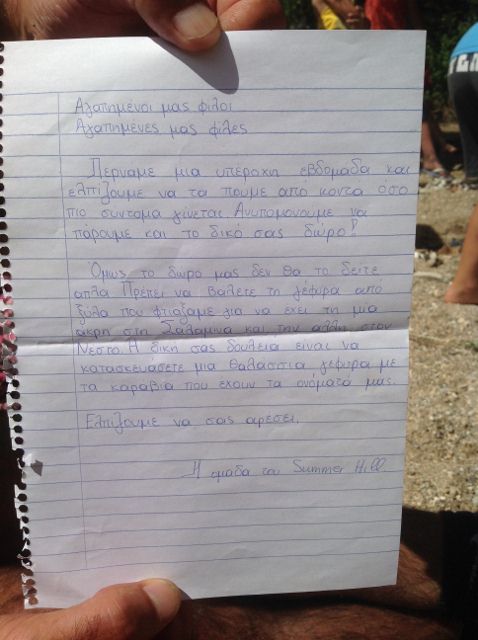 Αγαπημένοι μας φίλοι
Αγαπημένες μας φίλες
Περναμε μια υπέροχη εβδομαδα και
ελπίζουμε να τα πουμε από κοντα όσο
πιο συντομα γίνεται. Ανυπομονουμε να
πάρουμε και το δικό σας δώρο!
Όμως το δώρο μας δεν θα το δείτε
απλα. Πρέπει να βαλετε τη γέφυρα από
ξύλα που φτιαξαμε για να έχει τη μια
ακρη στη Σαλαμινα και την αλλη στον
Νεστο. Η δικη σας δουλεια ειναι να
κατασκευάσετε μια θαλάσσια γεφυρα με
τα καραβια που έχουν τα ονόματα μας.
Ελπίζουμε να σας αρεσει.
Η ομαδα του Summer Hill